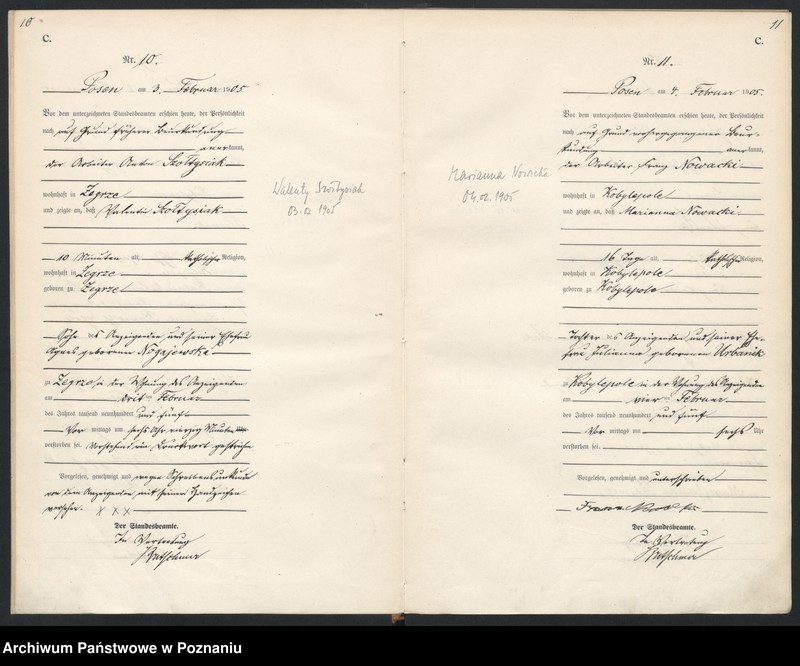 10
C.
Nr. 10.
Posen am 3. Februar 1905
Vor dem unterzeichneten Standesbeamten erschien heute, der Persönlichkeit
nach auf Grund früherer Beurkundung
anerkannt,
der Arbeiter Anton Szołtysiak
wohnhaft in Zegrze
und zeigte an, daß Valentin Szołtysiak
10 Minuten alt, katholischer Religion,
wohnhaft in Zegrze
geboren zu Zegrze
Sohn des Anzeigenden und seiner Ehefrau
Agnes geborenen Nogajewska
zu Zegrze in der Wohnung des Anzeigenden
am drit ten Februar
des Jahres tausend neunhundert und fünf
Vor mittags um sechs Uhr vierzig Minuten Uhr
verstorben sei. Vorstehend ein Druckwort gestrichen
Vorgelesen, genehmigt und wegen Schreibensunkunde
von dem Anzeigenden mit seinen Handzeichen
versehen. x x x
Der Standesbeamte.
In Vertretung
Walenty Szołtysiak
03.02 1905
11
C.
Nr. 11.
Posen am 4. Februar 1905.
Vor dem unterzeichneten Standesbeamten erschien heute, der Persönlichkeit
nach auf Grund vorhergegangener Beur-
kundung anerkannt,
der Arbeiter Franz Nowacki
wohnhaft in Kobylepole
und zeigte an, daß Marianna Nowacki
16 Tage alt, katholischer Religion,
wohnhaft in Kobylepole
geboren zu Kobylepole
Tochter des Anzeigenden und seiner Ehe-
frau Julianna geborenen Urbaniak
zu Kobylepole in der Wohnung des Anzeigenden
am vier ten Februar
des Jahres tausend neunhundert und fünf
Vor mittags um sechs Uhr
verstorben sei.
Vorgelesen, genehmigt und unterschrieben
Der Standesbeamte.
In Vertretung
Marianna Nowicka
04.02.1905
Archiwum Państwowe w Poznaniu